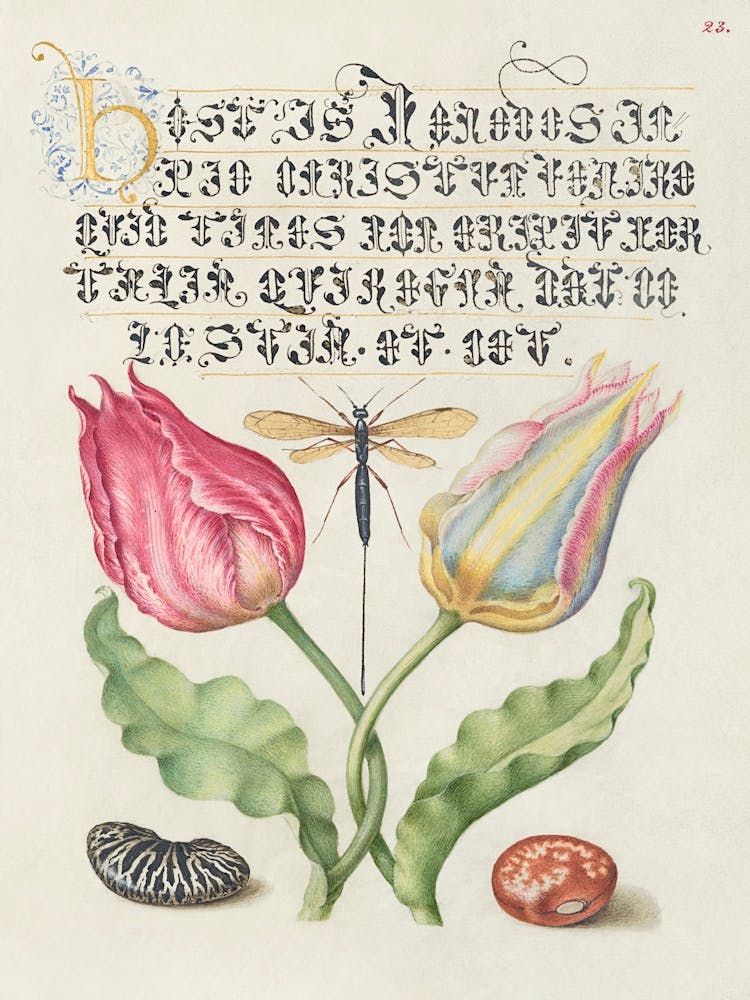 23.
HOSTIS HERODES IM-
PIE CHRISTVM VENIRE
QVID TIMES NON ERIPIT MOR
TALIA QVI REGNA DAT CE
LESTIA. ET. CET.